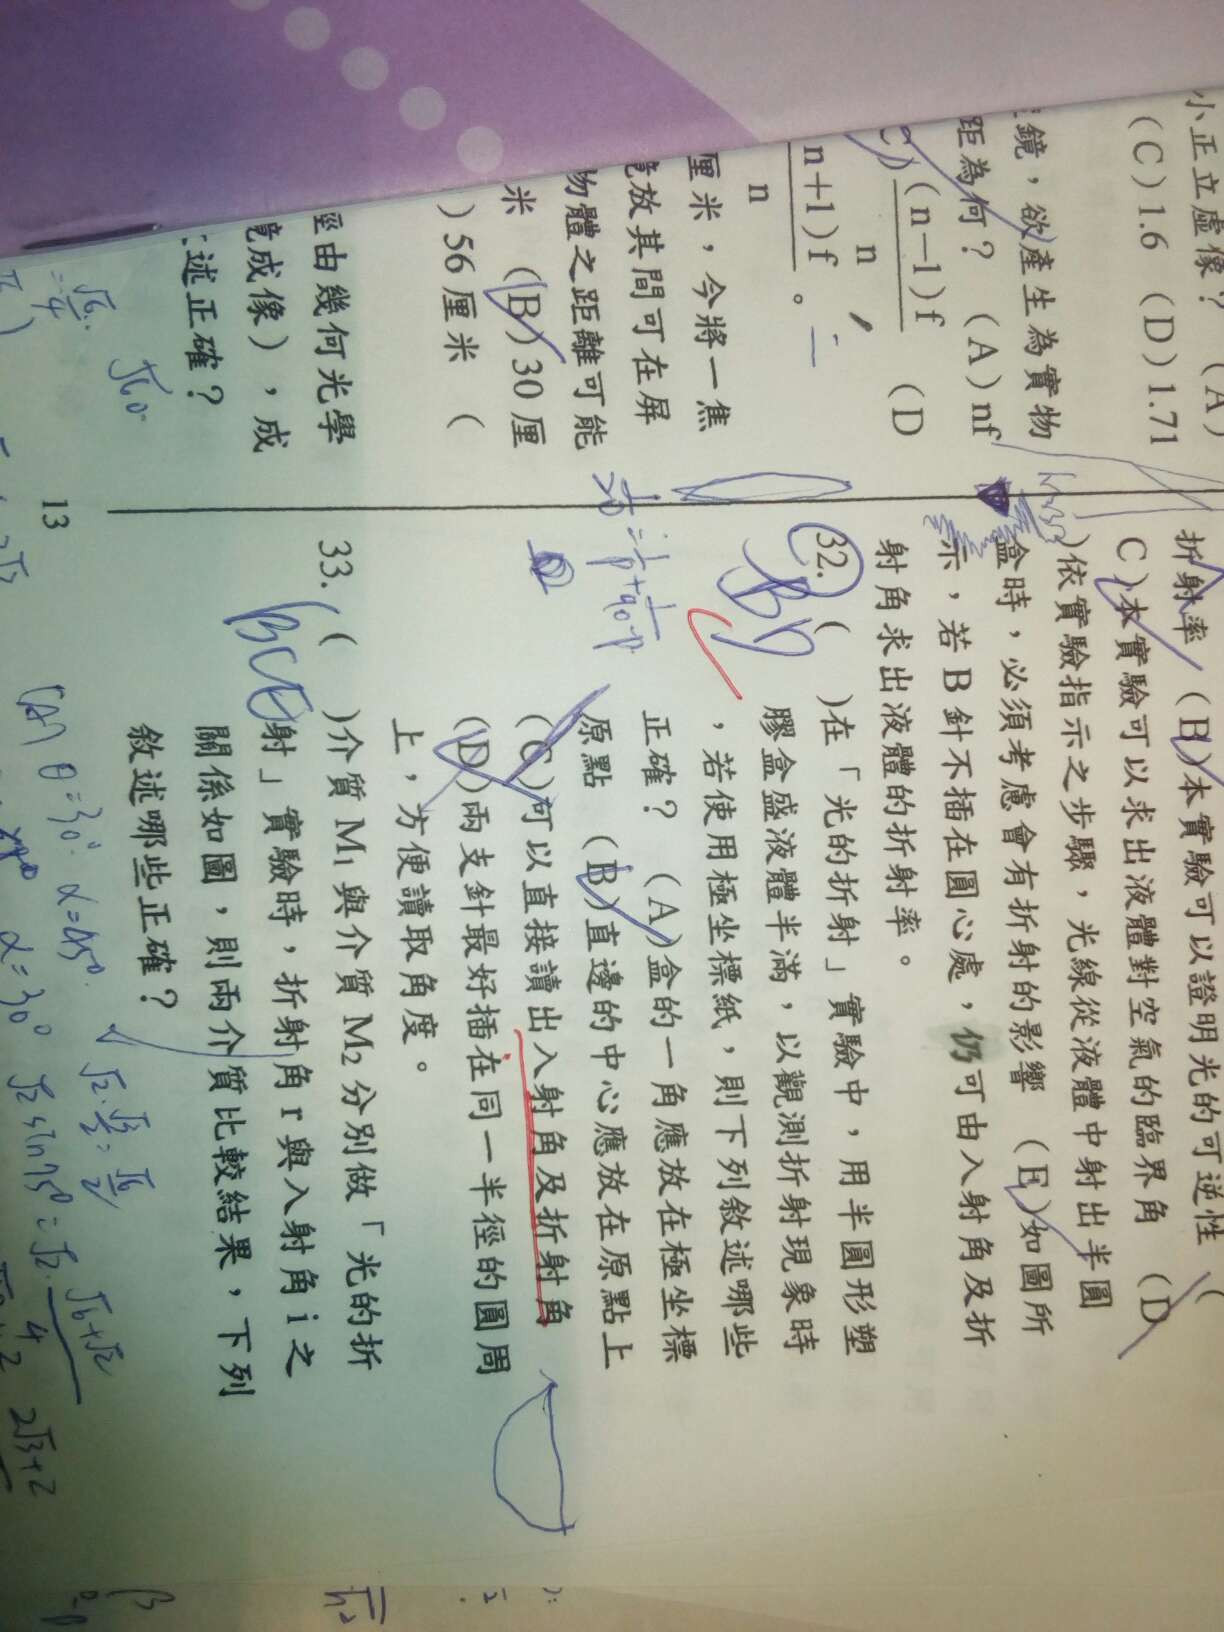 小正立虛像？ (A)
(C)1.6 (D)1.71
鏡，欲產生為實物
距為何？ (A)nf
(n－1)f
n
(D
n+1)f
n
。
厘米，今將一焦
竟放其間可在屏
物體之距離可能
米 (B)30厘
)56厘米 (
徑由幾何光學
竟成像)，成
述正確？
13
折射率 (B)本實驗可以證明光的可逆性 (
C)本實驗可以求出液體對空氣的臨界角 (D
)依實驗指示之步驟，光線從液體中射出半圓
盒時，必須考慮會有折射的影響 (E)如圖所
示，若B針不插在圓心處，仍可由入射角及折
射角求出液體的折射率。
32. ( )在「光的折射」實驗中，用半圓形塑
BD
膠盒盛液體半滿，以觀測折射現象時
，若使用極坐標紙，則下列敘述哪些
正確？ (A)盒的一角應放在極坐標
原點 (B)直邊的中心應放在原點上
(C)可以直接讀出入射角及折射角
(D)兩支針最好插在同一半徑的圓周
上，方便讀取角度。
33. ( )介質M₁與介質M₂分別做「光的折
射」實驗時，折射角r與入射角i之
關係如圖，則兩介質比較結果，下列
敘述哪些正確？
(A) θ=30° α=45°
α=30°